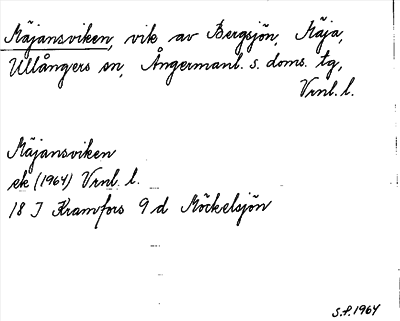 Mäjansviken, vik av Bergsjön, Mäja,
Ullångers sn, Ångermanl. s. doms. tg,
Vrnl. l.
Mäjansviken
ek (1964) Vrnl. l.
18 J Kramfors 9 d Möckelsjön
S.F. 1964